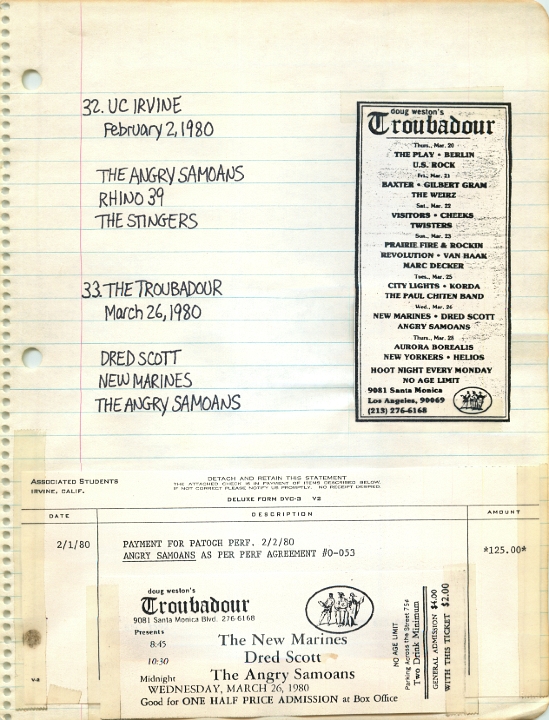 32. UC IRVINE
February 2, 1980
THE ANGRY SAMOANS
RHINO 39
THE STINGERS
33. THE TROUBADOUR
March 26, 1980
DRED SCOTT
NEW MARINES
THE ANGRY SAMOANS
doug weston's
Troubadour
Thurs., Mar. 20
THE PLAY • BERLIN
U.S. ROCK
Fri., Mar. 21
BAXTER • GILBERT GRAM
THE WEIRZ
Sat., Mar. 22
VISITORS • CHEEKS
TWISTERS
Sun., Mar. 23
PRAIRIE FIRE & ROCKIN
REVOLUTION • VAN HAAK
MARC DECKER
Tues., Mar. 25
CITY LIGHTS • KORDA
THE PAUL CHITEN BAND
Wed., Mar. 26
NEW MARINES • DRED SCOTT
ANGRY SAMOANS
Thurs., Mar. 28
AURORA BOREALIS
NEW YORKERS • HELIOS
HOOT NIGHT EVERY MONDAY
NO AGE LIMIT
9081 Santa Monica
Los Angeles, 90069
(213) 276-6168
ASSOCIATED STUDENTS
IRVINE, CALIF.
DETACH AND RETAIN THIS STATEMENT
THE ATTACHED CHECK IS IN PAYMENT OF ITEMS DESCRIBED BELOW.
IF NOT CORRECT PLEASE NOTIFY US PROMPTLY. NO RECEIPT DESIRED.
DELUXE FORM DVC-3 V-2
DATE DESCRIPTION AMOUNT
2/1/80 PAYMENT FOR PATOGH PERF. 2/2/80 *125.00*
ANGRY SAMOANS AS PER PERF AGREEMENT #0-053
doug weston's
Troubadour
9081 Santa Monica Blvd. 276-6168
Presents
8:45 The New Marines
10:30 Dred Scott
Midnight The Angry Samoans
WEDNESDAY, MARCH 26, 1980
Good for ONE HALF PRICE ADMISSION at Box Office
NO AGE LIMIT
Parking Across the Street 75¢
Two Drink Minimum
GENERAL ADMISSION $4.00
WITH THIS TICKET $2.00
V-2